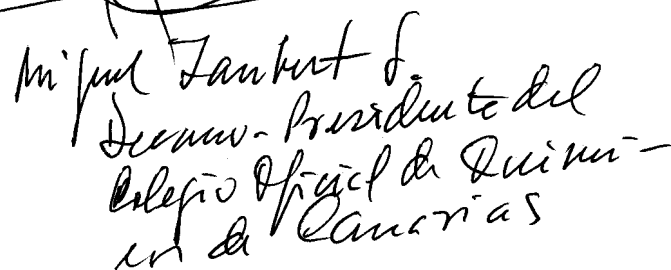 Miguel Zambert S.
Decano-Presidente del
Colegio Oficial de Quími-
cos de Canarias